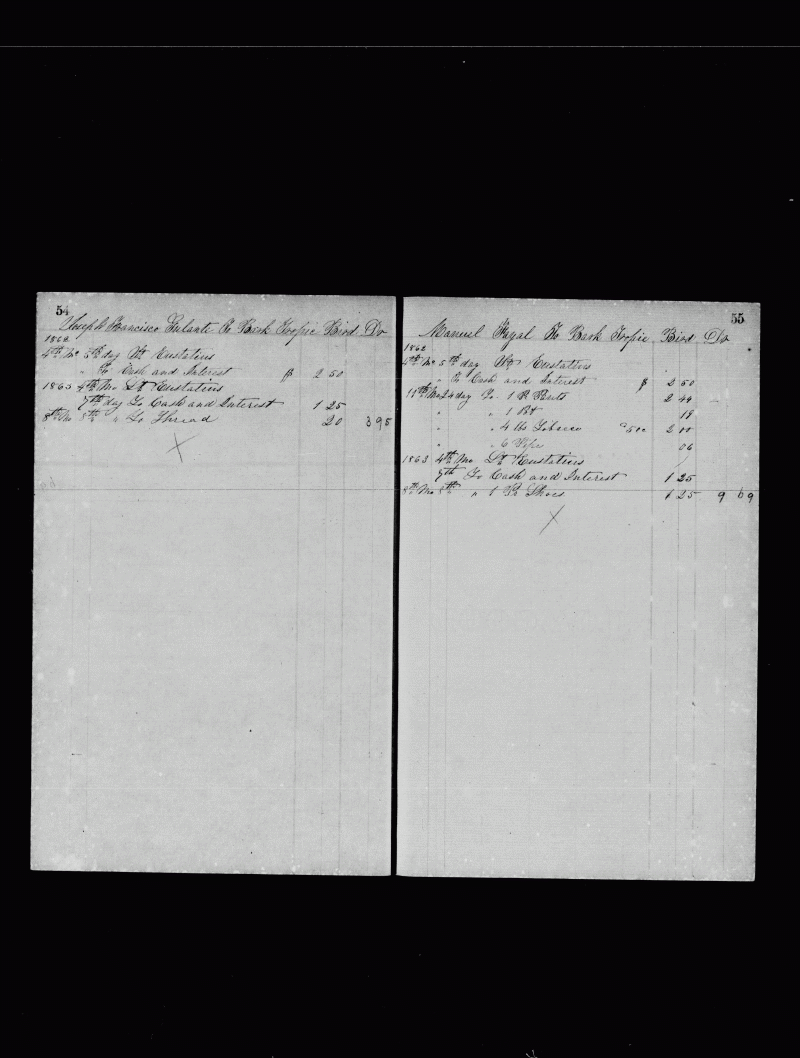 54
Joseph Francisco To Bark Tropic Bird Dr
1862
4th Mo 5th day St Eustatius
" To Cash and Interest $ 2 50
1863 4th Mo St Eustatius
9th day To Cash and Interest 1 25
8th Mo 8th " To Thread 20 3 95
55
Manuel Fayal To Bark Tropic Bird Dr
1862
4th Mo 5th day St Eustatius
" To Cash and Interest $ 2 50
11th Mo 24 day To 1 P Pants 2 44
" " 1 19
" " 4 lbs Tobacco @ 50c 2 00
" " 6 Pipe 06
1863 4th Mo St Eustatius
9th To Cash and Interest 1 25
8th Mo 8th " 1 Pr Shoes 1 25 9 69